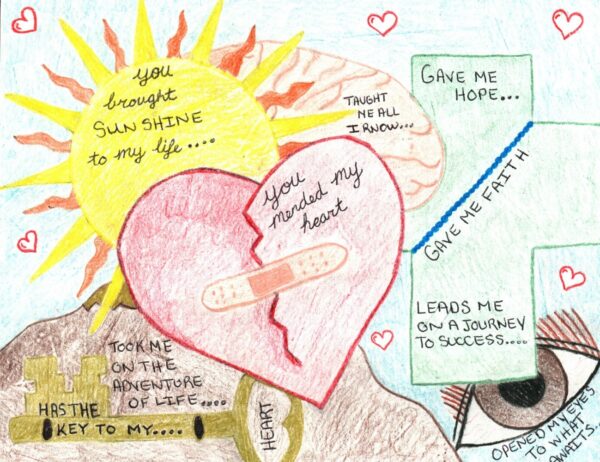 you
brought
SUNSHINE
to my life....
TAUGHT
ME ALL
I KNOW...
GAVE ME
HOPE...
you
mended my
heart
GAVE ME FAITH
LEADS ME
ON A JOURNEY
TO SUCCESS....
TOOK ME
ON THE
ADVENTURE
OF LIFE....
HAS THE
KEY TO MY....
HEART
OPENED MY EYES
TO WHAT
AWAITS...